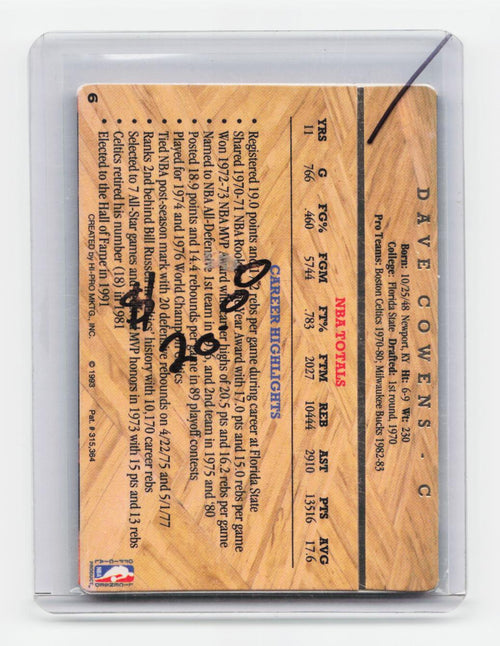 DAVE COWENS - C
Born: 10/25/48 Newport, Ky Ht: 6-9 Wt: 230
College: Florida State Drafted: 1st round, 1970
Pro Teams: Boston Celtics 1970-80; Milwaukee Bucks 1982-83
NBA TOTALS
YRS G FG% FGM FT% FTM REB AST PTS AVG
11 766 .460 5744 .783 2027 10444 2910 13516 17.6
CAREER HIGHLIGHTS
• Registered 19.0 points and rebs per game during career at Florida State
• Shared 1970-71 NBA Year Award with 17.0 pts and 15.0 rebs per game
Won 1972-73 NBA MVP Award highs of 20.5 pts and 16.2 rebs per game
• Named to NBA All-Defensive 1st team in and 2nd team in 1975 and '80
• Posted 18.9 points and 14.4 rebounds per game in 89 playoff contests
• Played for 1974 and 1976 World Champion
• Tied NBA post-season mark with 20 defensive rebounds on 4/22/75 and 5/1/77
• Ranks 2nd behind Bill Russell history with 10,170 career rebs
• Selected to 7 All-Star games and MVP honors in 1973 with 15 pts and 13 rebs
• Celtics retired his number (18) in 1981
• Elected to the Hall of Fame in 1991
6
CREATED BY HI-PRO MKTG, INC. © 1993 Pat. # 315,364
$20.00